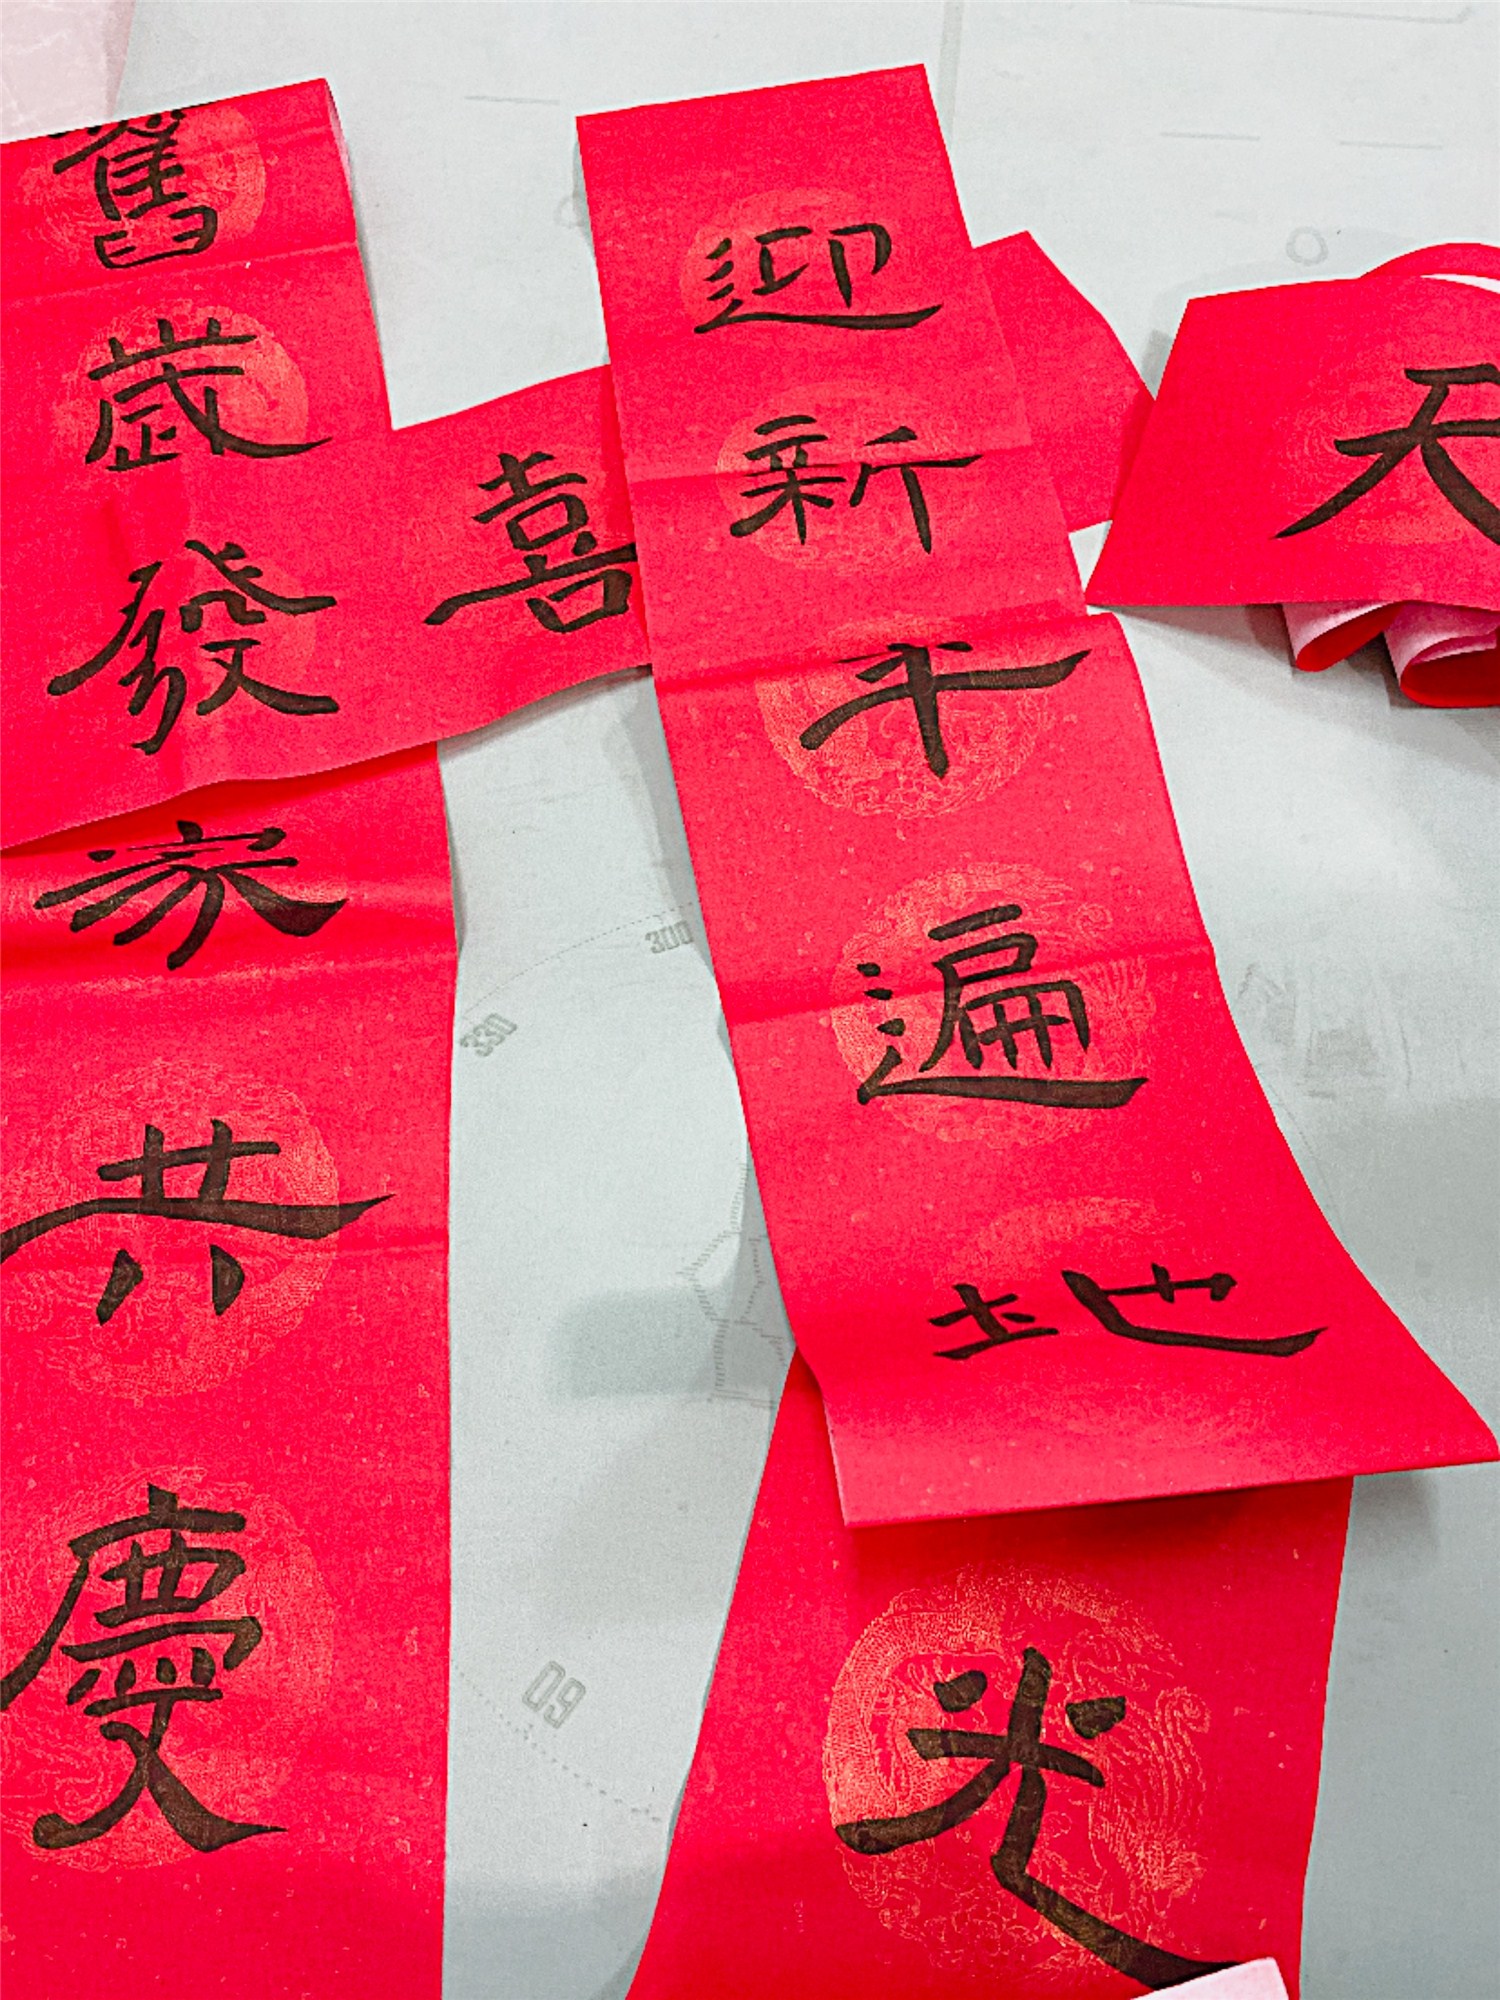 舊歲
發喜
家共慶
迎新年遍地
天
光
330
300
60